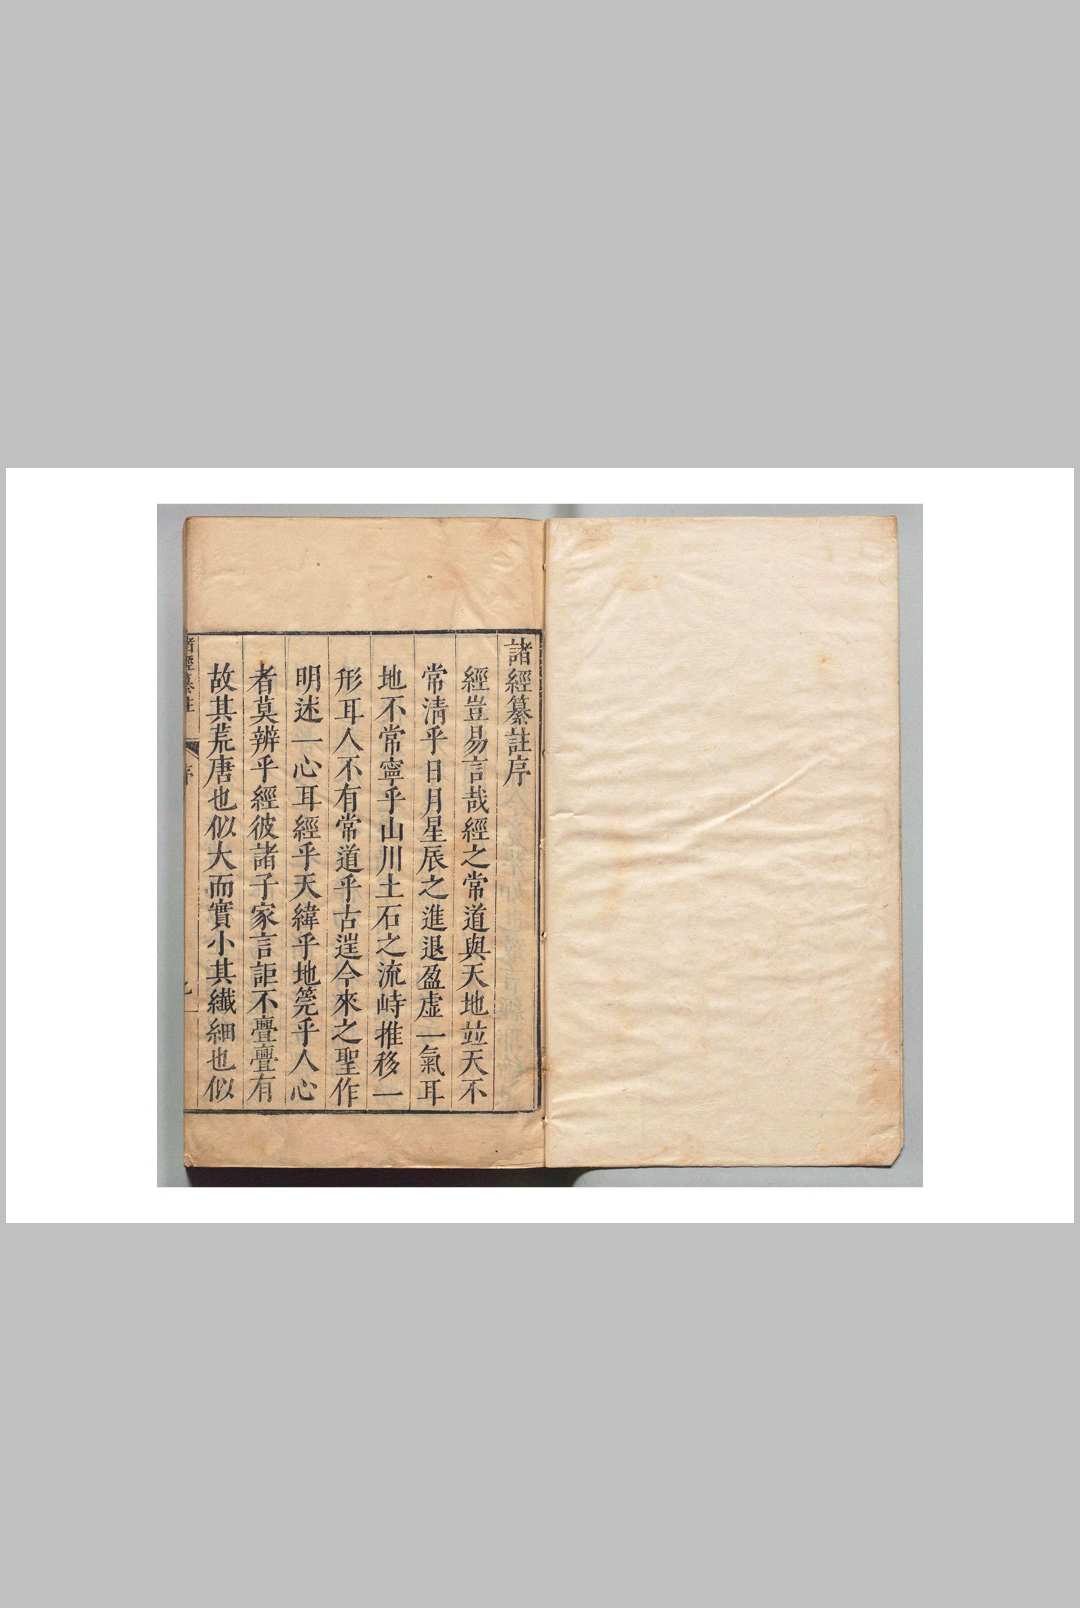 諸經纂註序
經豈易言哉經之常道與天地並天不
常清乎日月星辰之進退盈虛一氣耳
地不常寧乎山川土石之流峙推移一
形耳人不有常道乎古逞今來之聖作
明述一心耳經乎天緯乎地筦乎人心
者莫辨乎經彼諸子家言詎不亹亹有
故其荒唐也似大而實小其纖細也似
諸經纂註
序